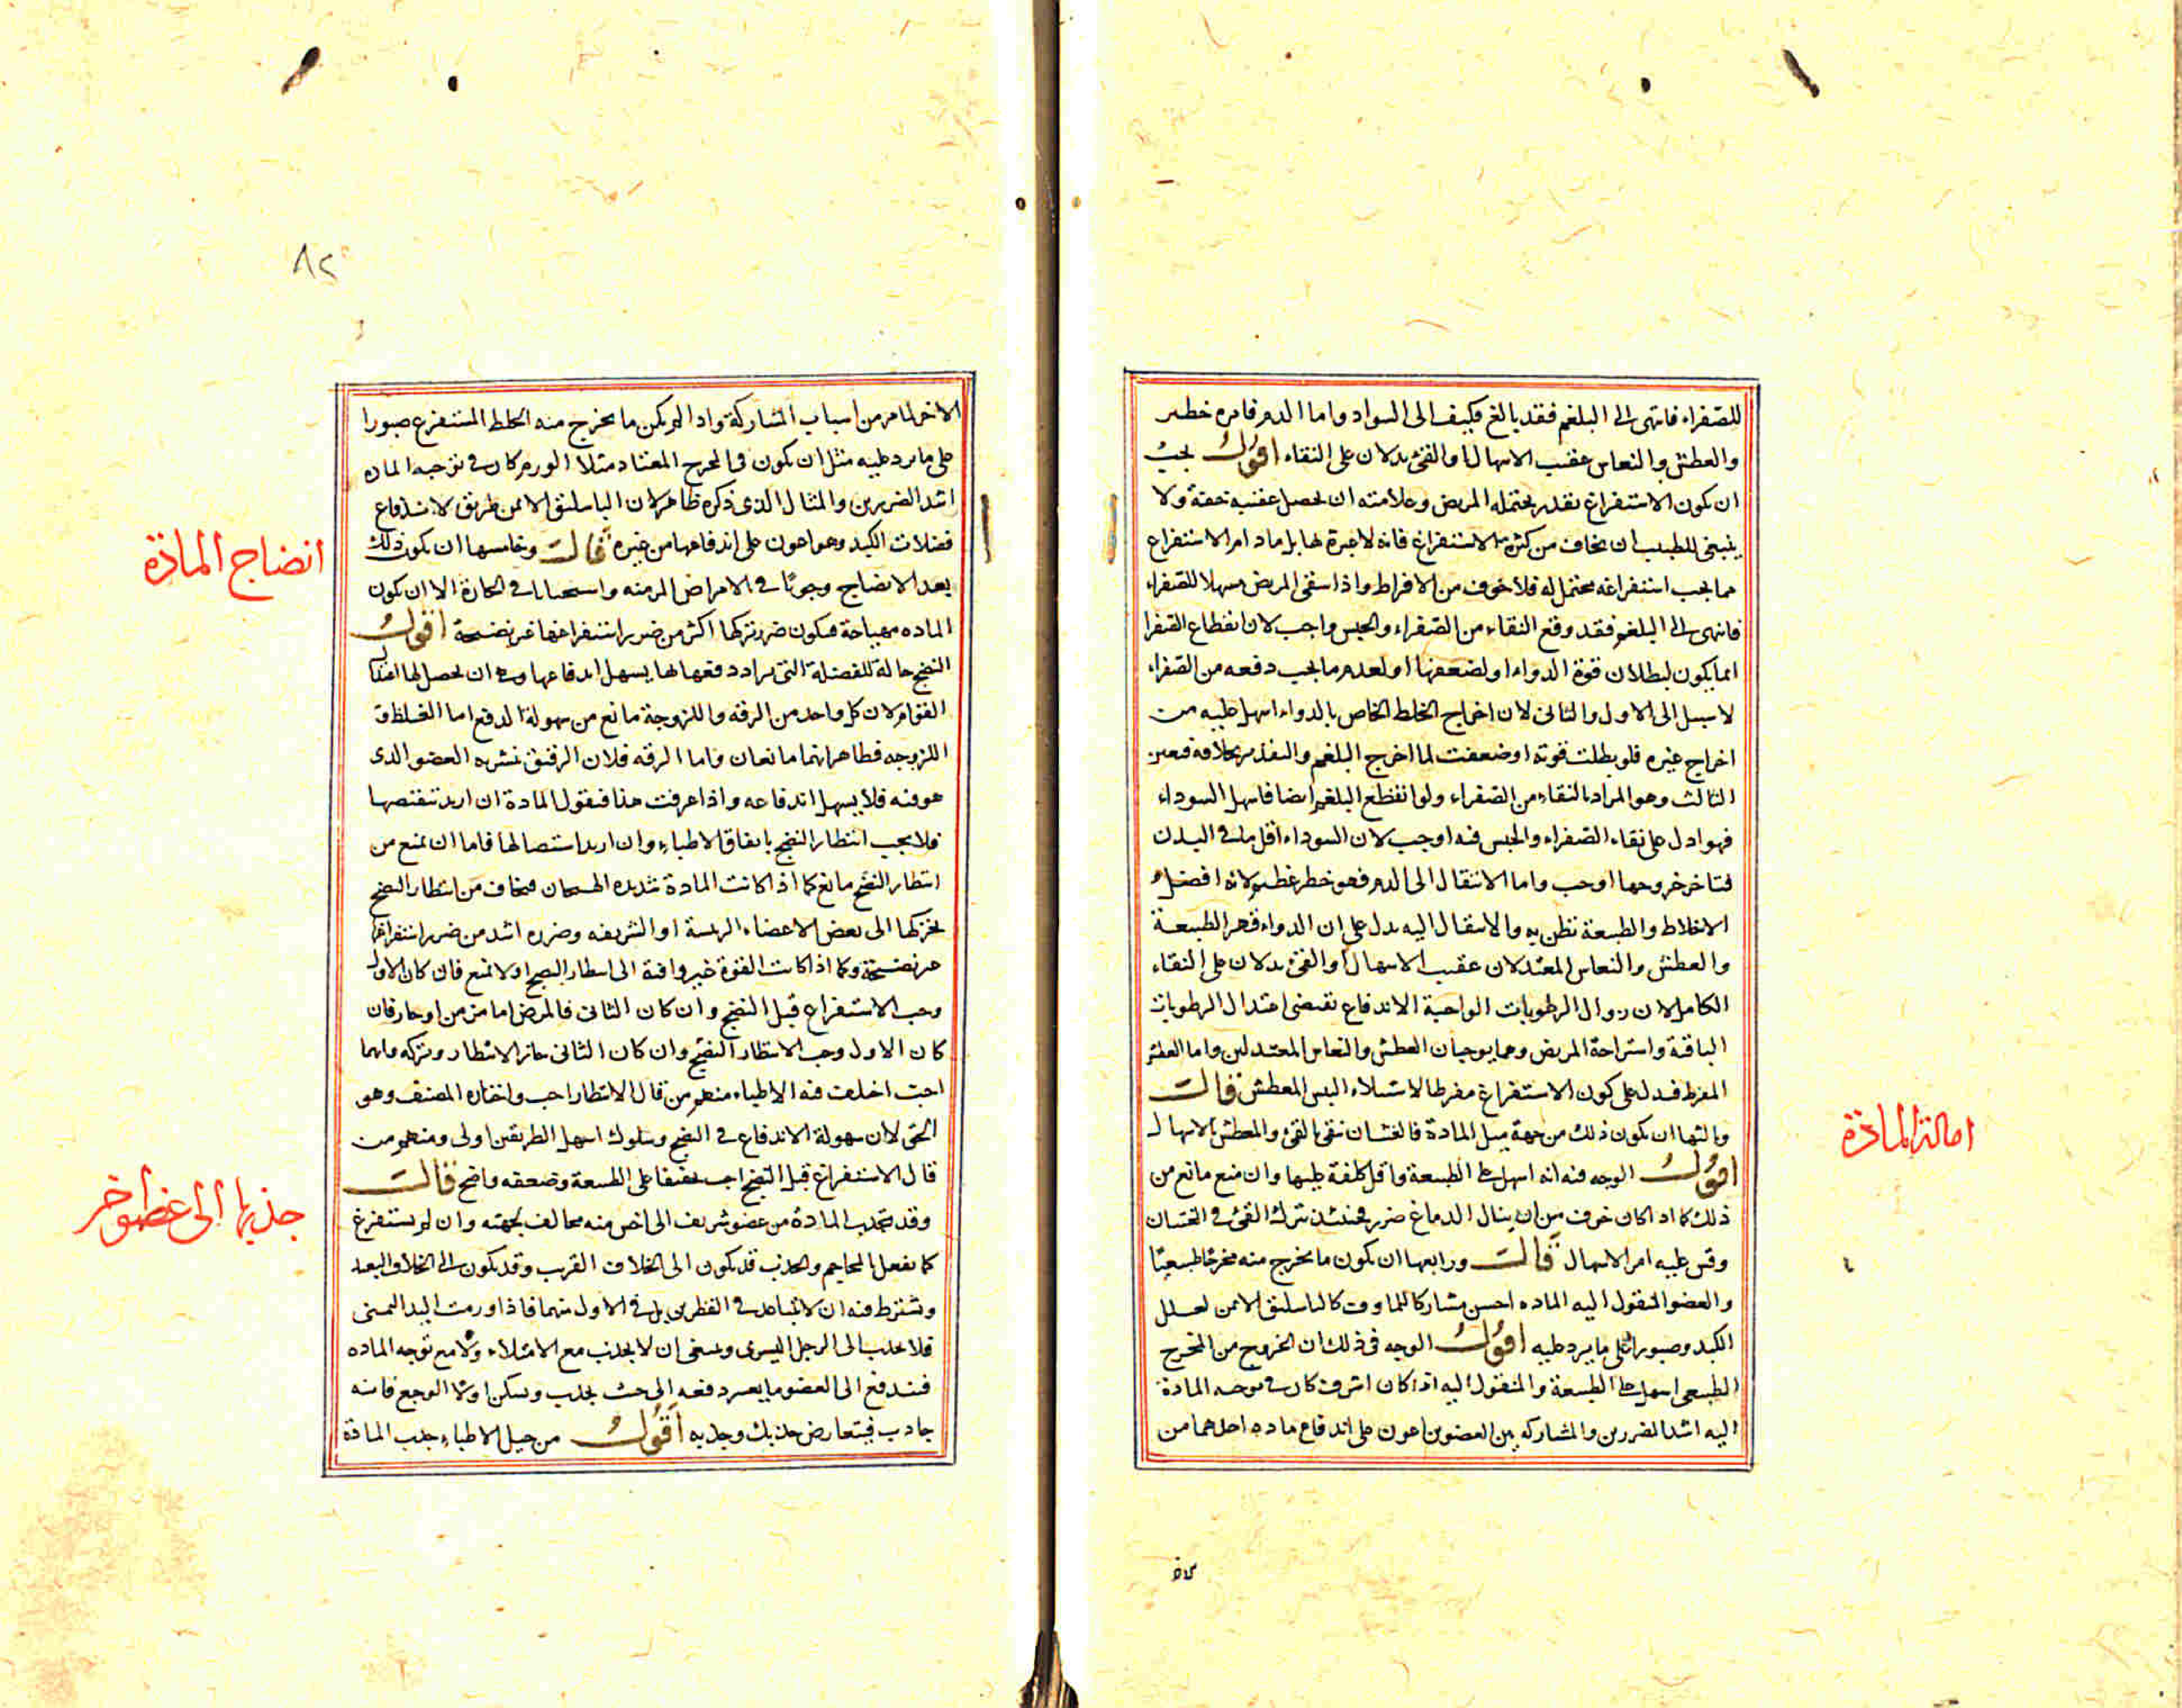 للصفراء فانتهى الى البلغم فقد بالغ فكيف الى السواد واما الدم فامره خطر
والعطش والنعاس عقيب الاسهال او القئ يدلان على النقاء اقول يجب
ان يكون الاستفراغ بقدر يحتمله المريض وعلامته ان يحصل عقيبه خفة ولا
ينبغى للطبيب ان يخاف من كثرة الاستفراغ فانه لا عبرة لها بل ما دام الاستفراغ
مما يجب استفراغه محتمل له فلا خوف من الافراط واذا سقى المريض مسهلا للصفراء
فانتهى الى البلغم فقد وقع النقاء من الصفراء والحبس واجب لان انقطاع الصفرا
انما يكون لبطلان قوة الدواء او لضعفها او لعدم ما يجب دفعه من الصفراء
لا سبيل الى الاول والثانى لان اخراج الخلط الخاص بالدواء اسهل عليه من
اخراج غيره فلو بطلت قوته او ضعفت لما اخرج البلغم والتقدير بخلافه فتعين
الثالث وهو المراد بالنقاء من الصفراء ولو انقطع البلغم ايضا فاسهل السوداء
فهو ادل على نقاء الصفراء والحبس فيه اوجب لان السوداء اقل ما فى البدن
فتاخر خروجها اوجب واما الانتقال الى الدم فهو خطر عظيم لانه افضل
الاخلاط والطبيعة تظن به والانتقال اليه يدل على ان الدواء قهر الطبيعة
والعطش والنعاس المعتدلان عقيب الاسهال او القئ يدلان على النقاء
الكامل لان زوال الرطوبات الواجبة الاندفاع تقتضى اعتدال الرطوبات
الباقية واستراحة المريض وهما يوجبان العطش والنعاس المعتدلين واما العطش
المفرط فيدل على كون الاستفراغ مفرطا لاستيلاء اليبس المعطش قال
وثالثها ان يكون ذلك من جهة ميل المادة فالغثيان ينقى بالقئ والمعطش بالاسهال
اقول الوجه فيه انه اسهل على الطبيعة واقل كلفة عليها وان منع مانع من
ذلك كما اذا كان خوف من ان ينال الدماغ ضرر فحينئذ نترك القئ فى الغثيان
وقس عليه امر الاسهال قال ورابعها ان يكون ما يخرج منه مخرجا طبيعيا
والعضو المنقول اليه الماده احسن مشاركا للماوف كالباسليق الايمن لعلل
الكبد وصبورا على ما يرد عليه اقول الوجه فى ذلك ان الخروج من المخرج
الطبيعى اسهل على الطبيعة والمنقول اليه اذا كان اشرف كان فى توجه المادة
اليه اشد الضررين والمشاركه بين العضوين اعون على اندفاع ماده احدهما من
امالة المادة
٨٢
الاخر لما مر من اسباب المشاركة واذا لم يكن ما يخرج منه الخلط المستفرغ صبورا
على ما يرد عليه مثل ان يكون فى المخرج المعتاد مثلا الورم كان فى توجيه الماده
اشد الضررين والمثال الذى ذكره ظاهر لان الباسليق الايمن طريق لاندفاع
فضلات الكبد وهو اعون على اندفاعها من غيره قال وخامسها ان يكون ذلك
بعد الانضاج وجوبا فى الامراض المزمنه واستحبابا فى الحارة الا ان يكون
الماده مهياجة فيكون ضرر تركها اكثر من ضرر استفراغها غير نضيجة اقول
النضج حالة للفضلة التى يراد دفعها لها يسهل اندفاعها وهى ان يحصل لها اعتدال
القوام لان كل واحد من الرقه واللزوجة مانع من سهولة الدفع اما الغلظ و
اللزوجه فظاهر انهما مانعان واما الرقه فلان الرقيق تشربه العضو الذى
هو فيه فلا يسهل اندفاعه واذا عرفت هذا فنقول المادة ان اريد تنقيصها
فلا يجب انتظار النضج باتفاق الاطباء وان اريد استصالها فاما ان يمنع من
انتظار النضج مانع كما اذا كانت المادة شديده الهيجان فيخاف من انتظار النضج
تحركها الى بعض الاعضاء الرئيسة او الشريفه وضرره اشد من ضرر استفراغها
غير نضيجة وكما اذا كانت القوة غير وافية الى انتظار النضج او لا يمنع فان كان الاول
وجب الاستفراغ قبل النضج وان كان الثانى فالمرض اما مزمن او حار فان
كان الاول وجب الانتظار النضج وان كان الثانى جاز الانتظار وتركه وايهما
احب اختلف فيه الاطباء منهم من قال الانتظار احب واختاره المصنف وهو
الحق لان سهولة الاندفاع فى النضج وسلوك اسهل الطريقين اولى ومنهم من
قال الاستفراغ قبل النضج احب تخفيفا على الطبيعة وضعفه واضح قال
وقد تجذب المادة من عضو شريف الى اخس منه مخالف لجهته وان لم يستفرغ
كما يفعل المحاجم والجذب قد يكون الى الخلاف القريب وقد يكون الى الخلاف البعيد
ويشترط فيه ان لا يتباعد فى القطرين بل فى الاول منهما فاذا ورمت اليد اليمنى
فلا يجذب الى الرجل اليسرى وينبغى ان لا يجذب مع الامتلاء ولا مع توجه الماده
فيندفع الى العضو ما يعسر دفعه الى حيث يجذب ويسكن اولا الوجع فانه
جاذب فيتعارض جذبك وجذبه اقول من حيل الاطباء جذب المادة
انضاج المادة
جذبها الى عضو اخر